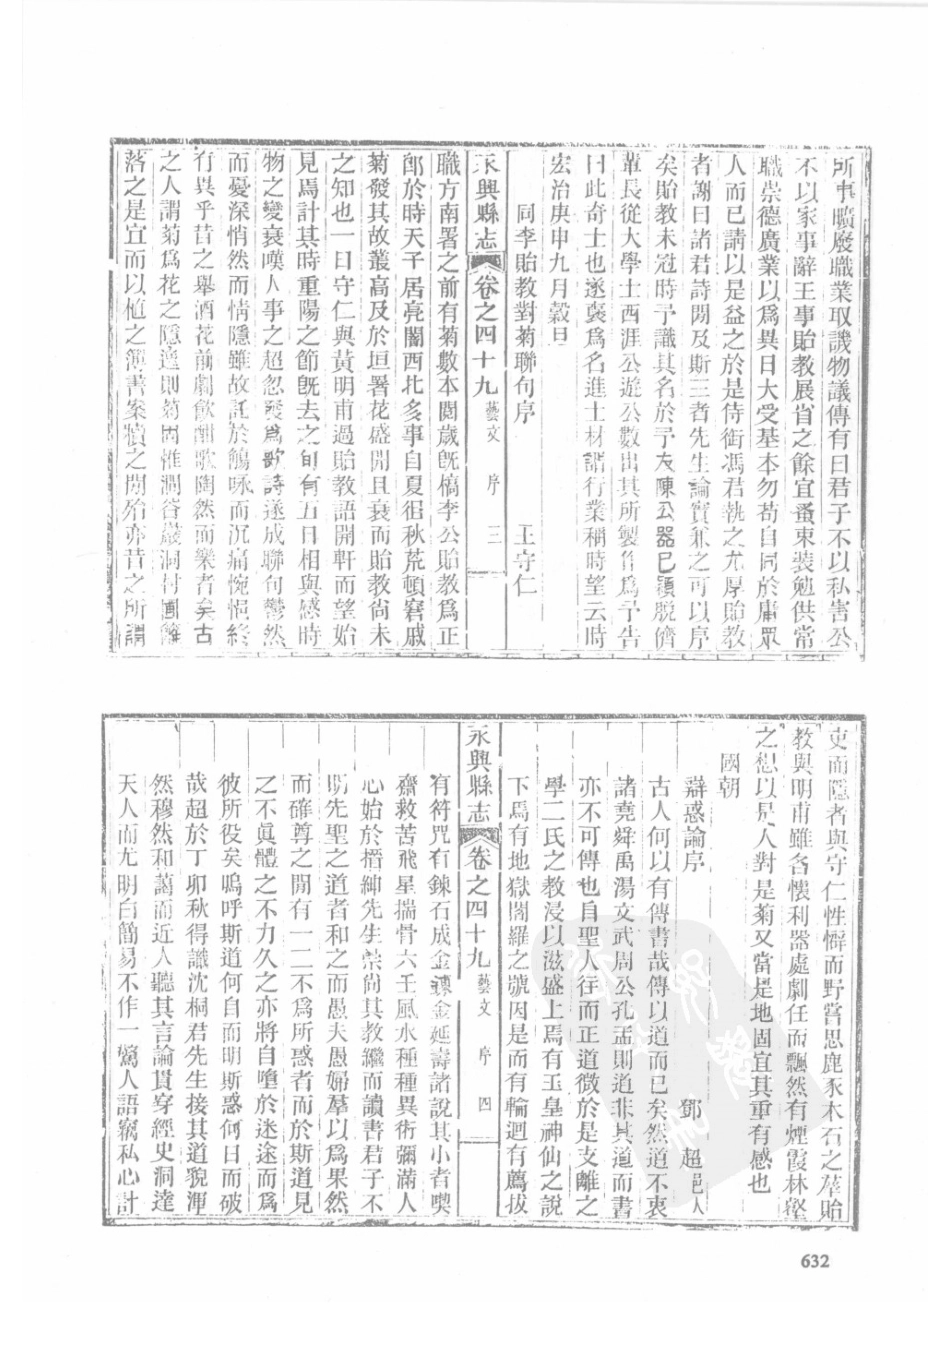 所事曠廢職業取譏物議傳有曰君子不以私害公
不以家事辭王事貽教展省之餘宜蚤束裝勉供常
職崇德廣業以爲異日大受基本勿苟自同於庸眾
人而已請以是益之於是侍御馮君執之尤厚貽教
者謝曰諸君詩閒及斯三者先生論實兼之可以序
矣貽教未冠時予識其名於予友陳公器巳穎脫儕
輩長從大學士西涯公遊公數出其所製作爲予告
曰此奇士也遂褎爲名進士材諝行業稱時望云時
宏治庚申九月穀旦
同李貽教對菊聯句序 王守仁
永興縣志 卷之四十九 藝文 序 三
職方南署之前有菊數本閱歲旣槁李公貽教爲正
郎於時天子居亮闇西北多事自夏徂秋荒頓窘戚
菊發其故叢高及於垣署花盛開且衰而貽教尙未
之知也一日守仁與黃明甫過貽教語開軒而望始
見焉計其時重陽之節旣去之旬有五日相與感時
物之變衰嘆人事之超忽發爲歌詩遂成聯句鬱然
而憂深悄然而情隱雖故託於觴咏而沉痛惋悒終
有異乎昔之舉酒花前劇飲酣歌陶然而樂者矣古
之人謂菊爲花之隱逸則菊固惟澗谷巖洞村圃籬
落之是宜而以植之簿書案牘之閒殆亦昔之所謂
吏而隱者與守仁性懈而野嘗思鹿豕木石之羣貽
教與明甫雖各懷利器處劇任而飄然有煙霞林壑
之想以是人對是菊又當是地固宜其重有感也
國朝
辯惑論序 鄧 超邑人
古人何以有傳書哉傳以道而已矣然道不衷
諸堯舜禹湯文武周公孔孟則道非其道而書
亦不可傳也自聖人往而正道微於是支離之
學二氏之教浸以滋盛上焉有玉皇神仙之說
下焉有地獄閻羅之號因是而有輪迴有薦拔
永興縣志 卷之四十九 藝文 序 四
有符咒有鍊石成金鍊金延壽諸說其小者喫
齋救苦飛星揣骨六壬風水種種異術彌滿人
心始於搢紳先生崇尙其教繼而讀書君子不
明先聖之道者和之而愚夫愚婦羣以爲果然
而確尊之閒有一二不爲所惑者而於斯道見
之不眞體之不力久之亦將自墮於迷途而爲
彼所役矣嗚呼斯道何自而明斯惑何日而破
哉超於丁卯秋得識沈桐君先生接其道貌渾
然穆然和藹而近人聽其言論貫穿經史洞達
天人而尤明白簡易不作一驚人語竊私心計
632